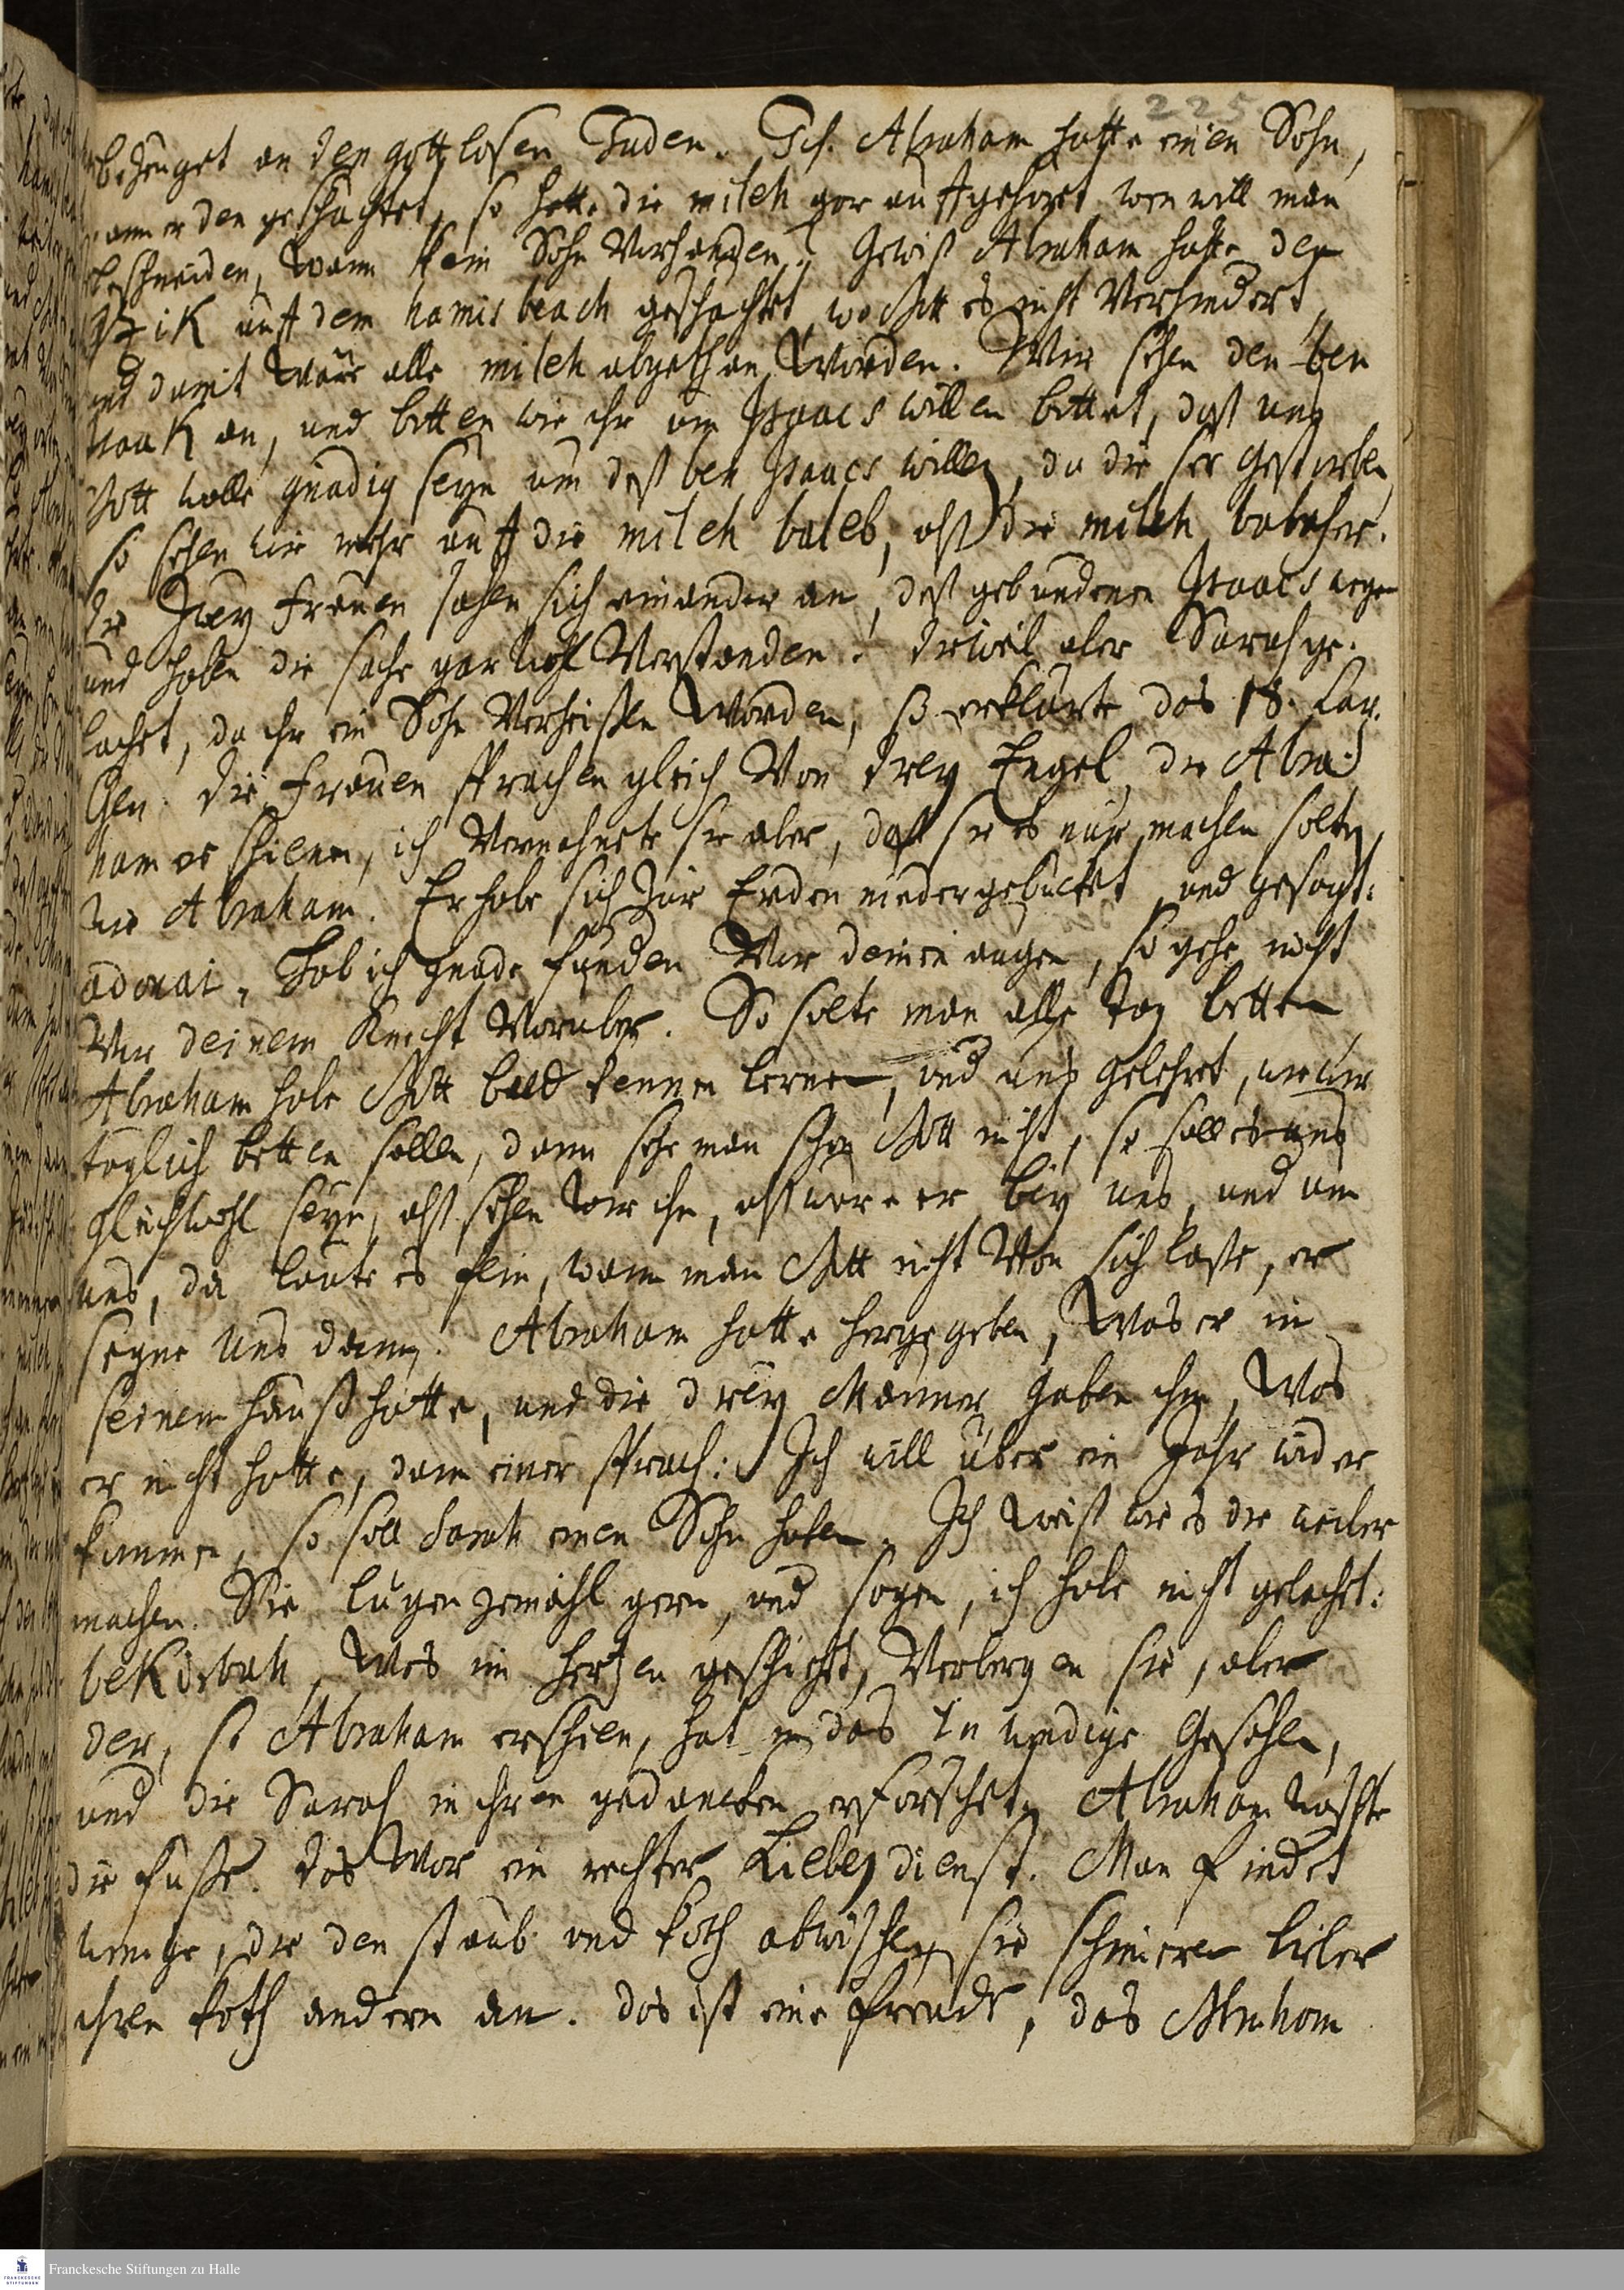 225
bezeuget an den gottlosen Juden. Ich. Abraham hatte einen Sohn,
wann er den geschachtet, so hette die mileh gar auffgehöret, wen will man
beschneiden, wann kein Sohn Vorhanden? Gewiß Abraham hatte den
Itzik auff dem hamisbeach geschachtet, wo Gott es nicht Verhindert,
und damit wäre alle mileh abgethan worden. Wir sehen den ben
an, und bitten wie ihr um Isaacs willen bittet, daß uns
Gott wolle gnädig seyn um deß ben Isaacs willen, da dieser gestorben,
so sehen wir mehr auff die mileh baleb, alß die mileh babasar.
Die Zwey frauen sahen sich einander an, deß gebundenen Isaacs wegen
und haben die sache gar wohl Verstanden. dieweil aber Sarah ge-
lachet, da ihr ein Sohn Verheißen worden, so erklärte das 18. Cap.
Gen. die frauen sprachen gleich Von drey Engel, die Abra-
ham erschienen, ich Vermahnete sie aber, daß sie es nur machen solten,
wie Abraham. Er habe sich zur Erden niedergebücket, und gesagt:
adonai, Hab ich gnade funden Vor deinen augen, so gehe nicht
Vor deinem Knecht Vorüber. So solte man alle tag betten
Abraham habe Gott bald kennen lernen, und uns gelehret, wie wir
täglich betten sollen, dann sehe man schon Gott nicht, so soll es uns
gleichwohl seyn, alß sehen wir ihn, alß wäre er bey uns, und um
uns, da laute es fein, wann man Gott nicht Von sich lasse, er
segne Uns dann. Abraham hatte hergegeben, Was er in
seinem hauß hatte, und die drey Männer gaben ihm, Was
er nicht hatte, dann einer sprach: Ich will über ein Jahr wider
kommen, so soll Sarah einen Sohn haben. Ich weiß wie es die weiber
machen. Sie lugen gern, und sagen, ich habe nicht gelachet:
bekirbah, was im hertzen geschicht, Verbergen sie, aber
der, so Abraham erschien, hat in das inwendige gesehen,
und die Sarah in ihren gedancken erforschet. Abraham
die füsse. das War ein rechter Liebesdienst. Man findet
wenige, die den staub und koth abwischen, sie schmieren lieber
ihren koth andern an. das ist eine freude, das Abraham
Franckesche Stiftungen zu Halle